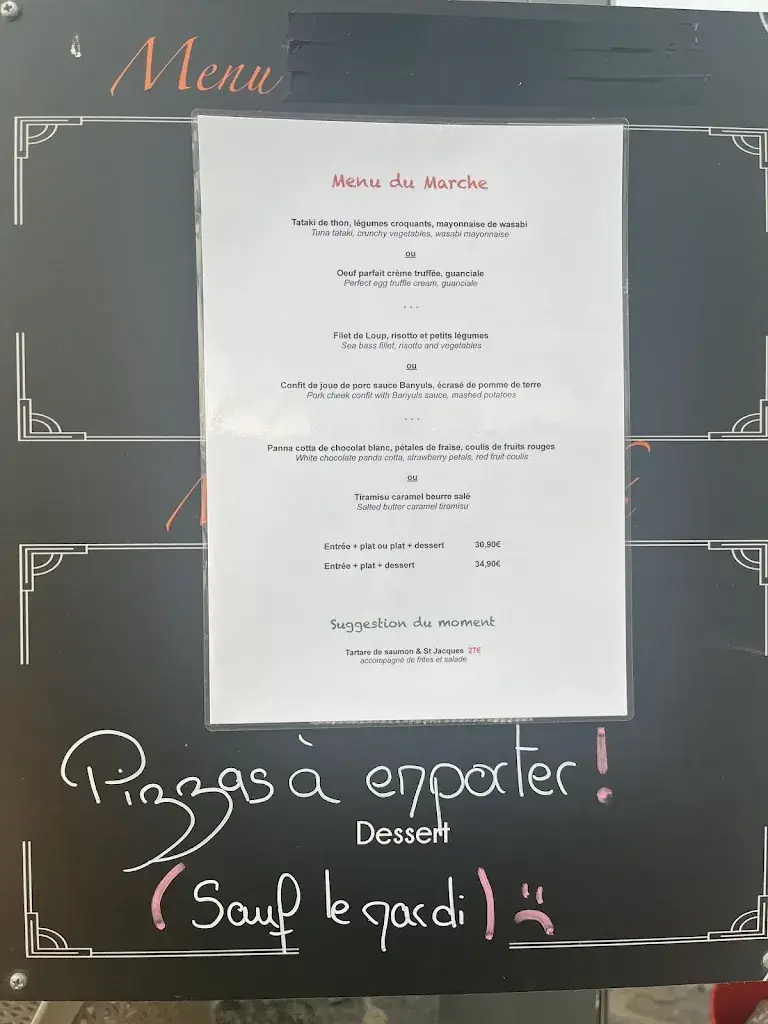 Menu
Menu du Marche
Tataki de thon, légumes croquants, mayonnaise de wasabi
Tuna tataki, crunchy vegetables, wasabi mayonnaise
ou
Oeuf parfait crème truffée, guanciale
Perfect egg truffle cream, guanciale
...
Filet de Loup, risotto et petits légumes
Sea bass fillet, risotto and vegetables
ou
Confit de joue de porc sauce Banyuls, écrasé de pomme de terre
Pork cheek confit with Banyuls sauce, mashed potatoes
...
Panna cotta de chocolat blanc, pétales de fraise, coulis de fruits rouges
White chocolate panda cotta, strawberry petals, red fruit coulis
ou
Tiramisu caramel beurre salé
Salted butter caramel tiramisu
Entrée + plat ou plat + dessert 30,90€
Entrée + plat + dessert 34,90€
Suggestion du moment
Tartare de saumon & St Jacques 27€
accompagné de frites et salade
Pizzas à emporter !
Dessert
(Sauf le mardi) :(